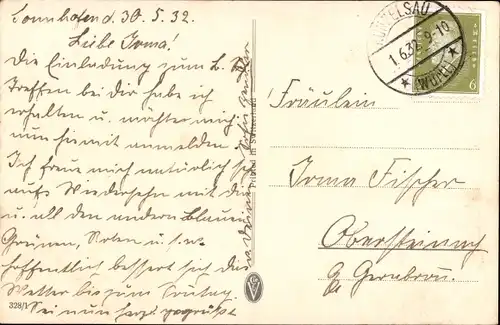 Sonnhofen d. 30.5.32.
Liebe Irma!
Die Einladung zum B. K.
Treffen bei dir habe ich
erhalten u. möchte mich
nun hiemit anmelden.
Ich freue mich natürlich sehr
aufs Wiedersehn mit dir
u. all den andern Blauen
Grünen, Roten u.s.w.
Hoffentlich bessert sich das
Wetter bis zum
Sei nun herzl. gegrüßt
328/1
Printed in
KÜNZELSAU
1.6.32. 9-10
* (WÜRTT) *
6
Fräulein
Irma Fischer
Obersteinach
Gerabronn.